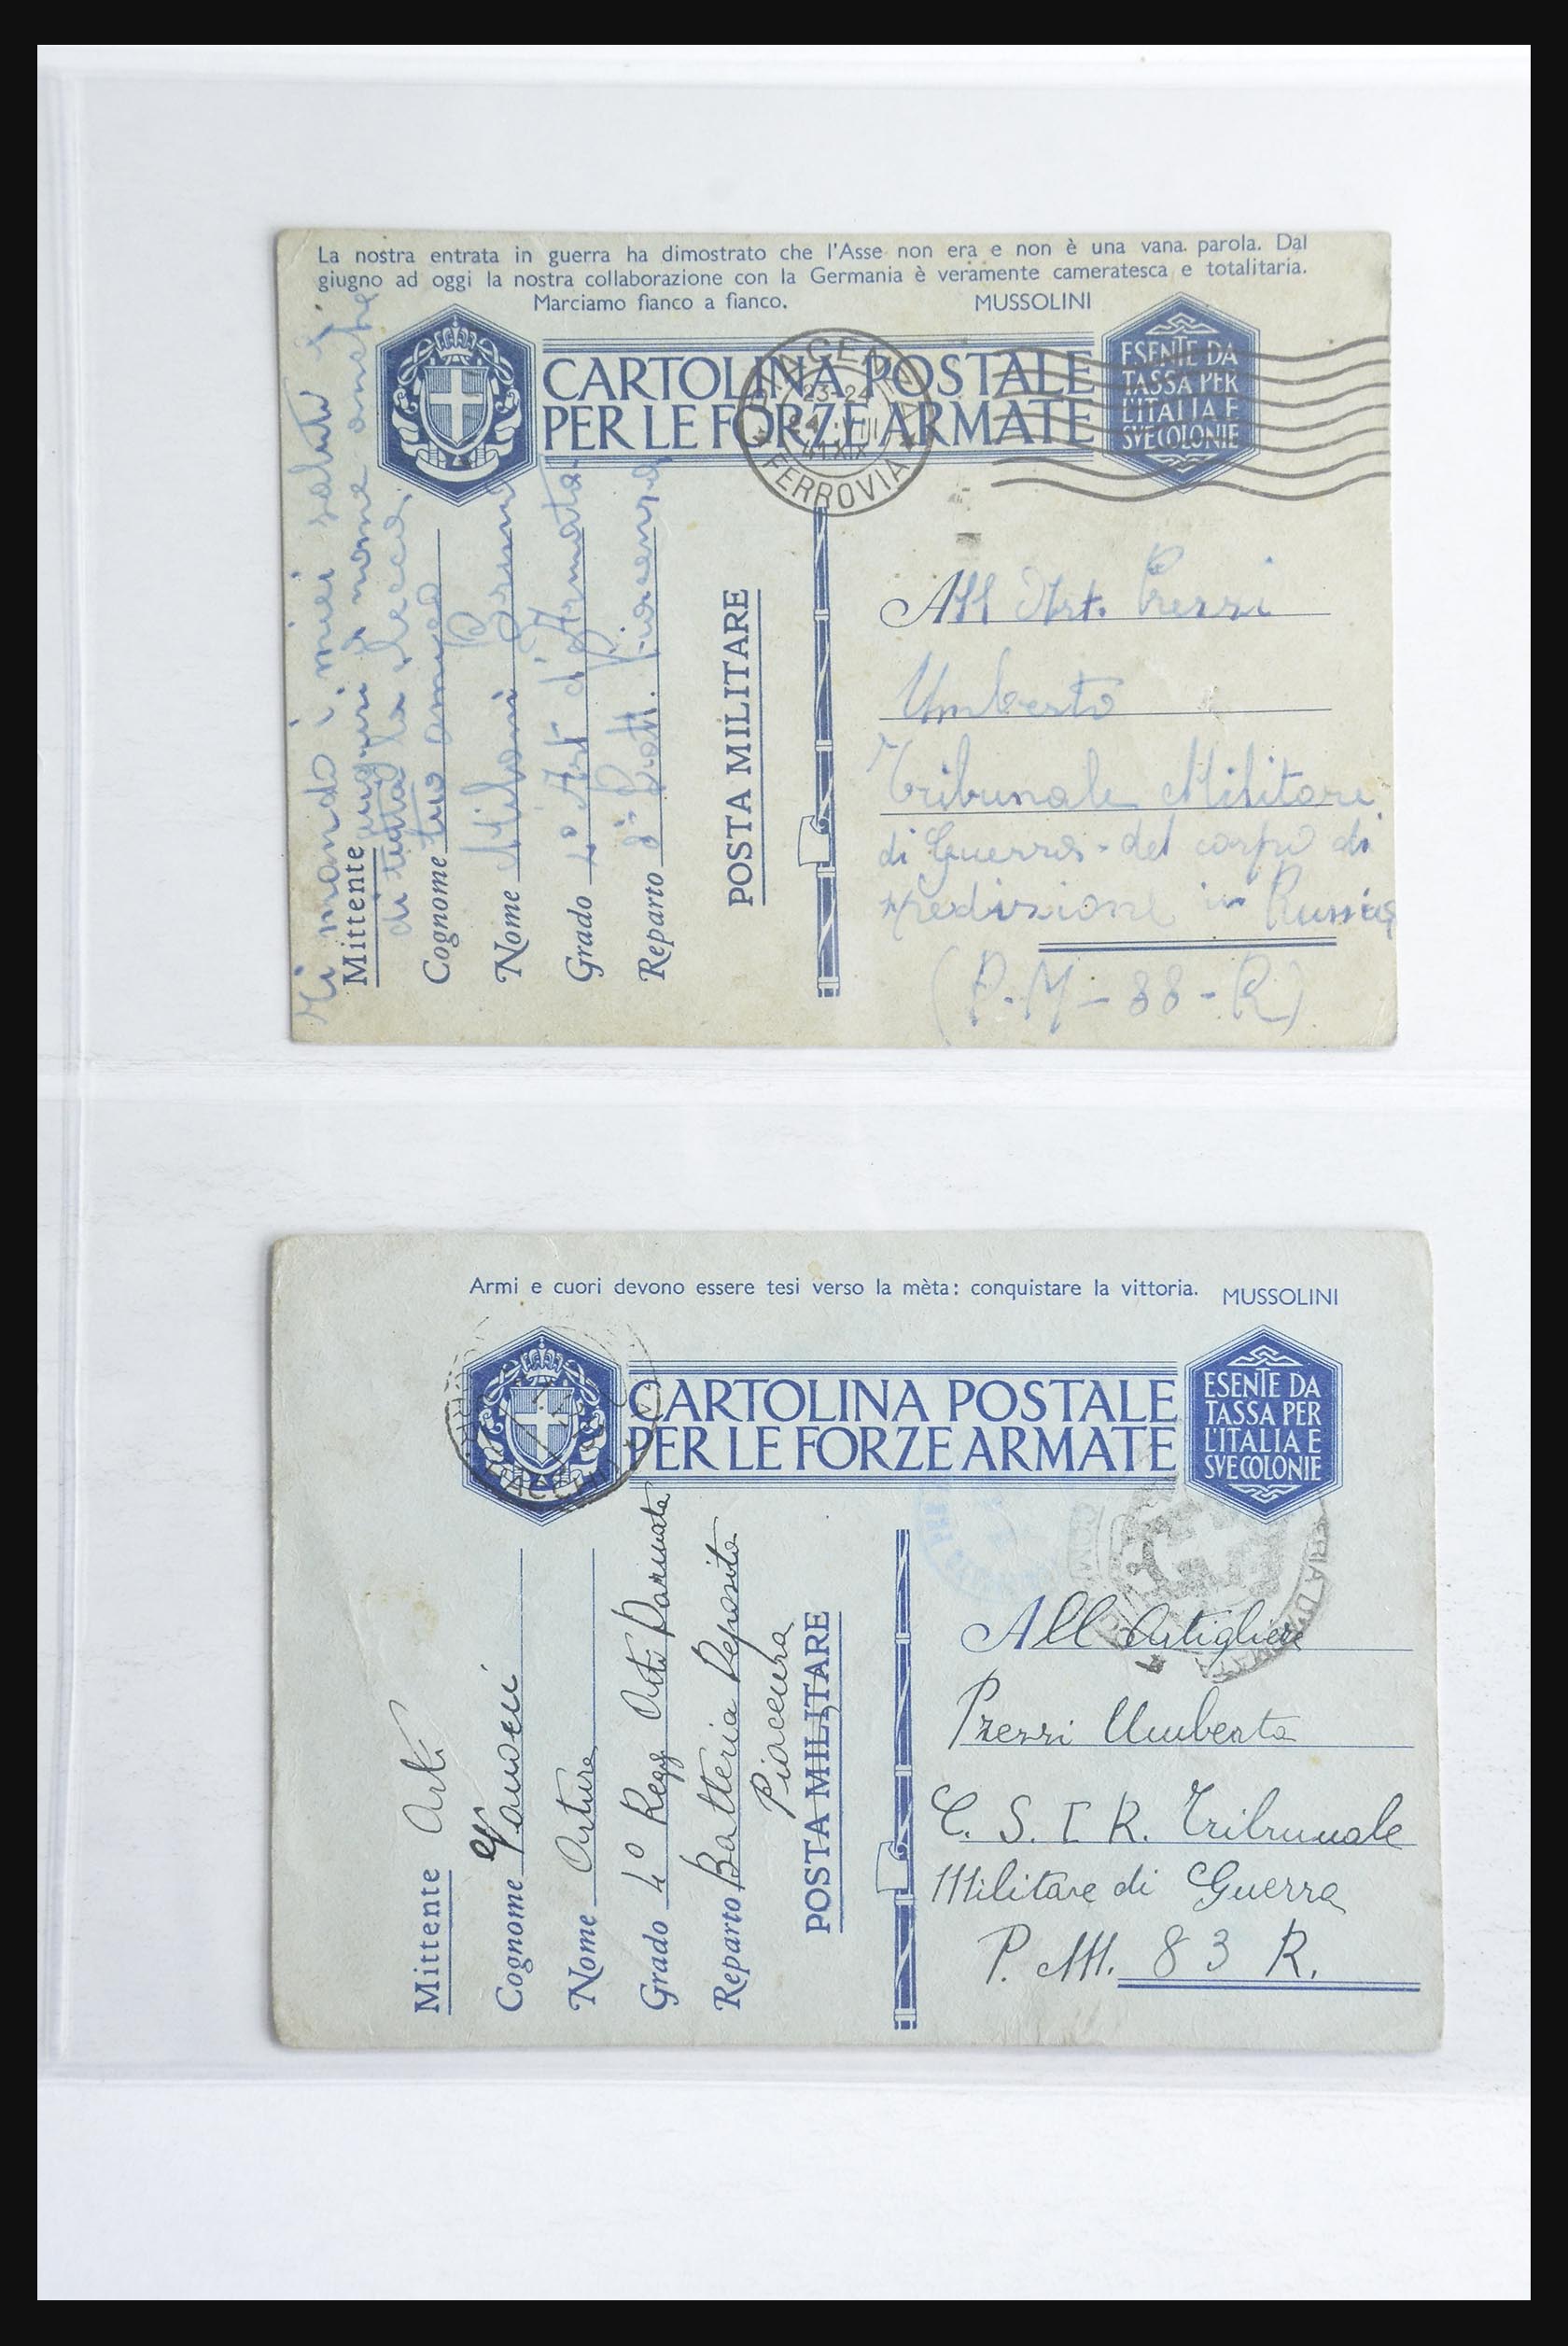 La nostra entrata in guerra ha dimostrato che l'Asse non era e non è una vana. parola. Dal
giugno ad oggi la nostra collaborazione con la Germania è veramente cameratesca e totalitaria.
Marciamo fianco a fianco. MUSSOLINI
CARTOLINA POSTALE
PER LE FORZE ARMATE
ESENTE DA
TASSA PER
L'ITALIA E
SVE COLONIE
PIACENZA
23-24
FERROVIA
Ti mando i miei saluti e
auguri a nome anche
di tutta la
tuo amico
Mittente
Cognome
Nome Milani Bruno
Grado 4° Art d'Armata
Reparto Batt. Piacenza
POSTA MILITARE
All Art. Prezzi
Umberto
Tribunale Militare
di Guerra - del corpo di
spedizione in Russia
(P.M - 88 - R)
Armi e cuori devono essere tesi verso la mèta: conquistare la vittoria. MUSSOLINI
CARTOLINA POSTALE
PER LE FORZE ARMATE
ESENTE DA
TASSA PER
L'ITALIA E
SVE COLONIE
Mittente Art.
Cognome
Nome Arturo
Grado 4° Regg Art. Darmata
Reparto Batteria Deposito
Piacenza
POSTA MILITARE
All Artigliere
Prezzi Umberto
C. S. I R. Tribunale
Militare di Guerra
P. M. 83 R.